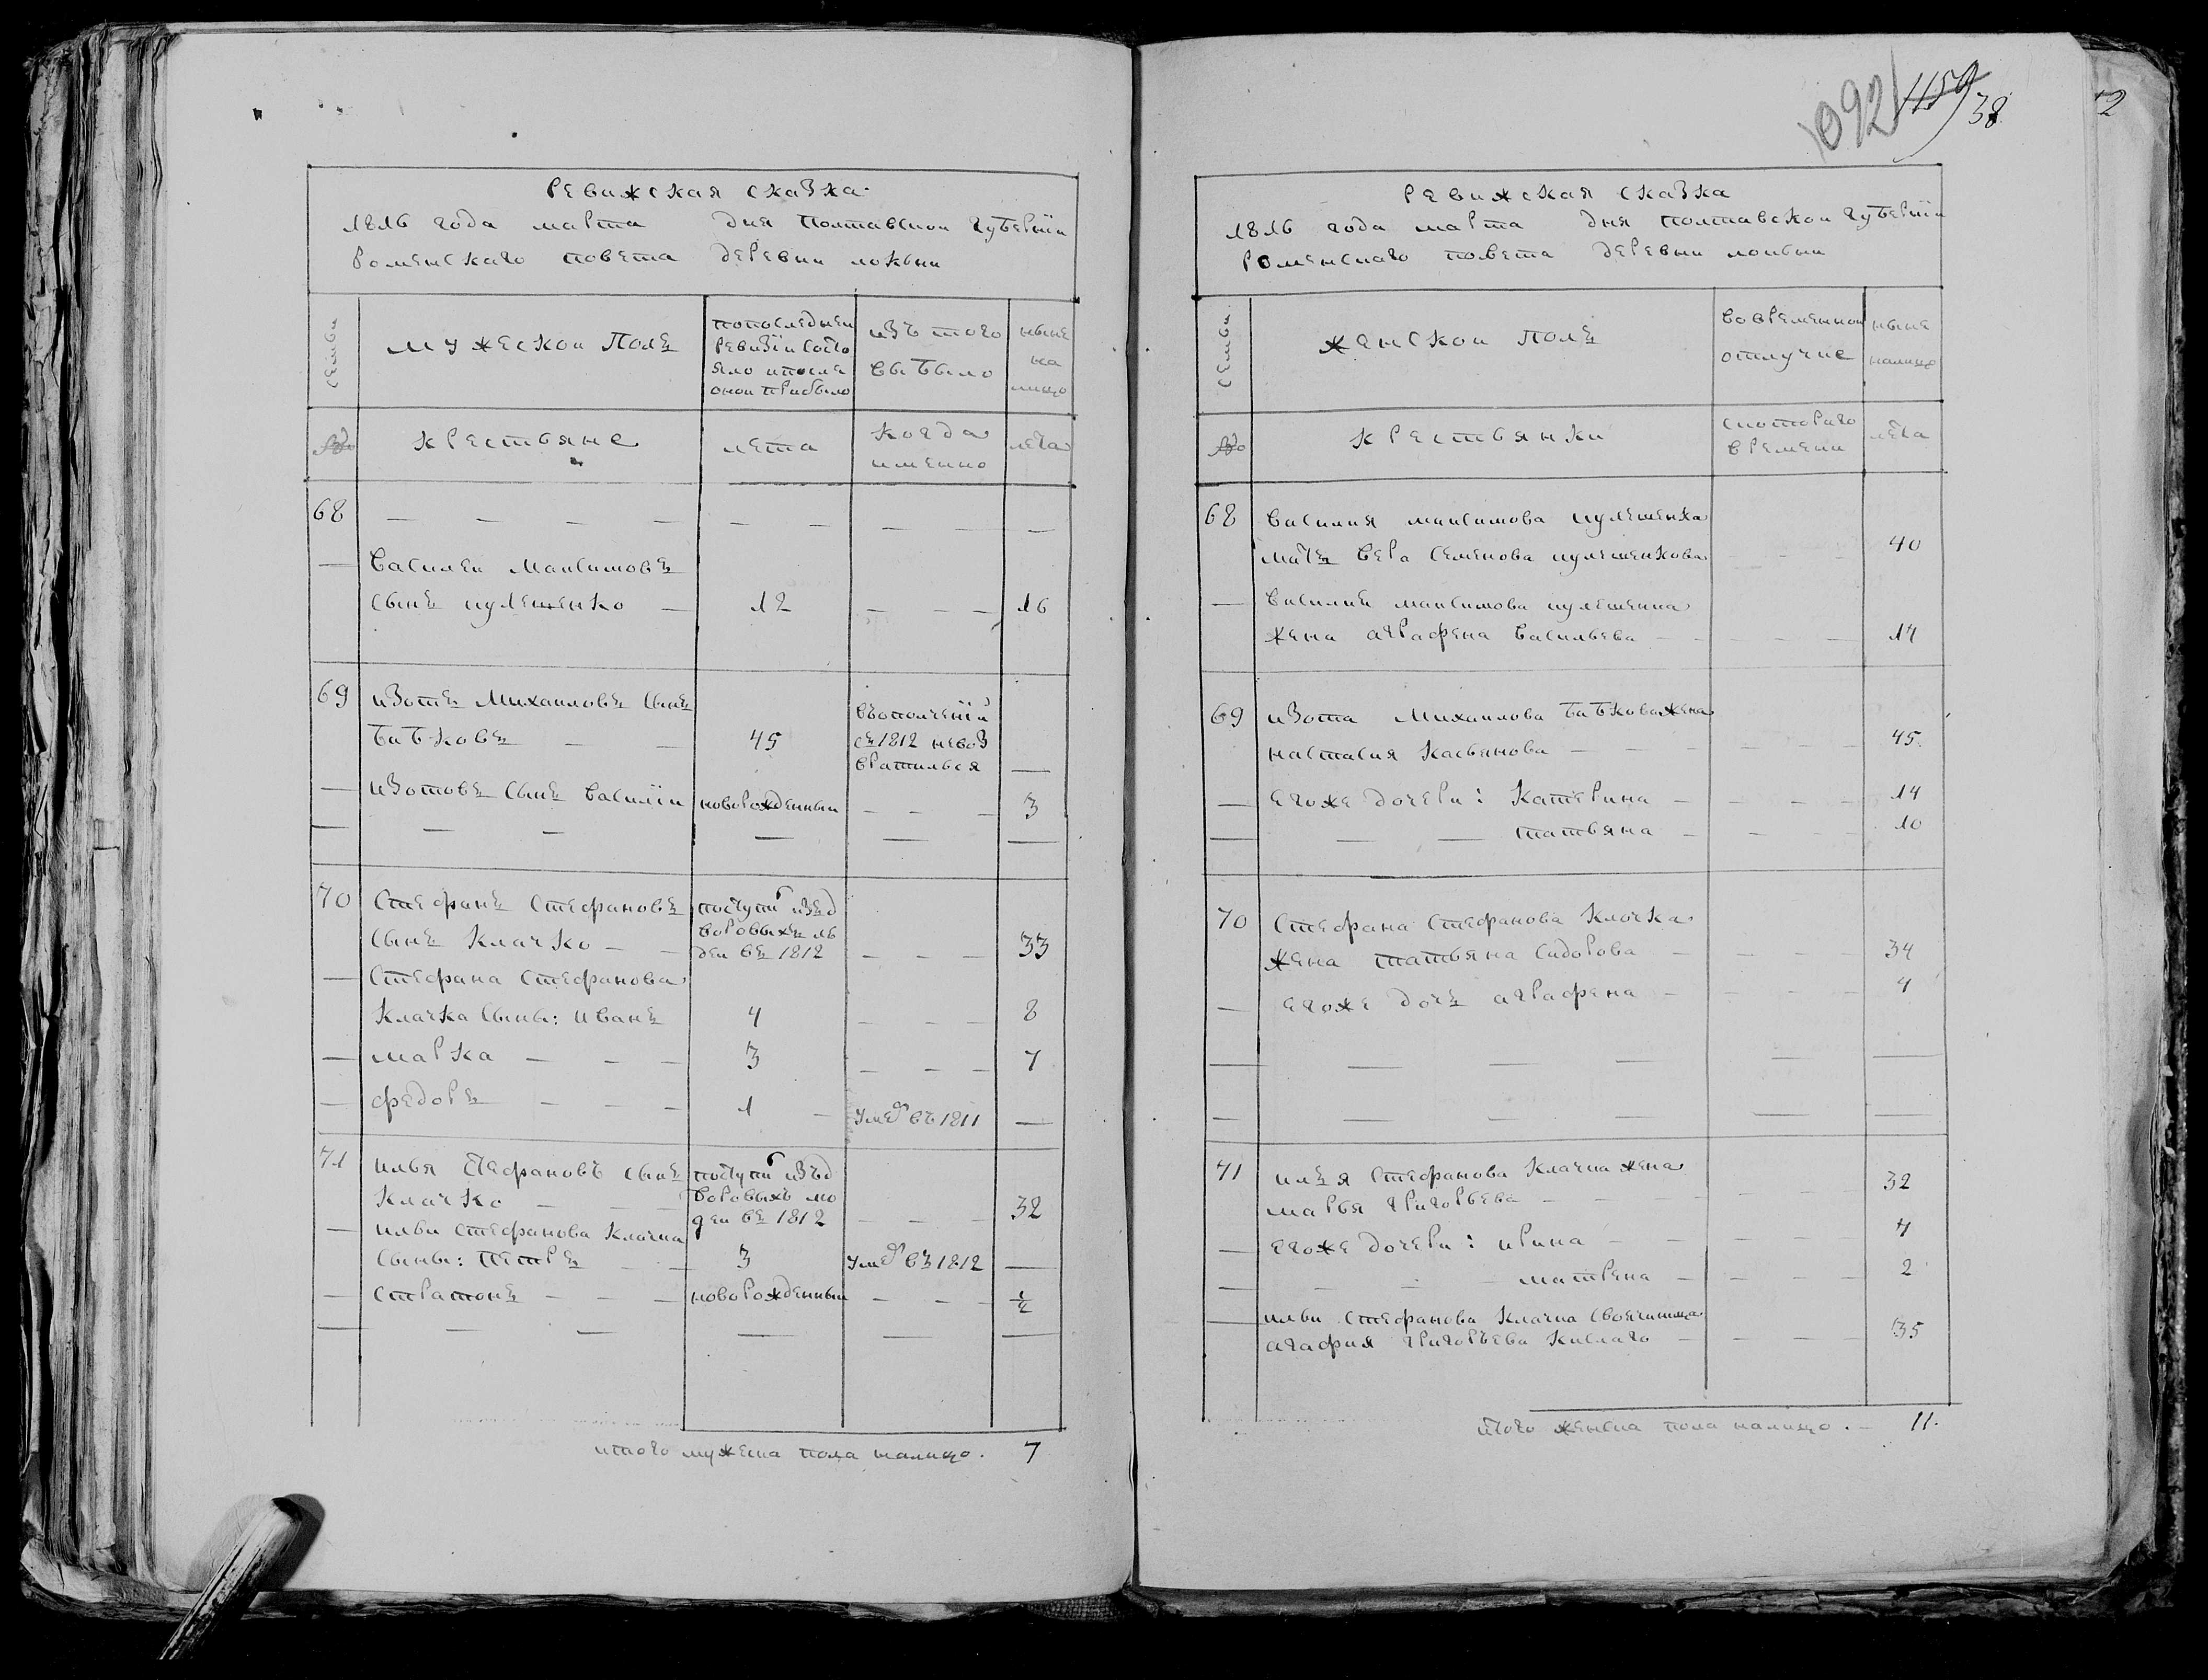 Ревижская сказка
1816 года марта дня Полтавской губернïи
Роменскаго повета деревни локъни
семьи
мужескои Полъ
попоследнеи
ревизïи состо
яло ипосле
онои прибыло
изъ того
выбыло
ныне
на
лицо
№
крестьяне
лета
когда
именно
лета
68 — — — — — — — — —
— Василеи Максимовъ
сынъ кулешенко — 12 — — — 16
69 изотъ Михаиловъ сынъ
бабковъ — — 45
въополченïи
съ 1812 невоз
вратилься —
— изотовъ сынъ василïи новорожденныи — — — 3
— — — — — —
70 Стефанъ Стефановъ
сынъ Клачко — — 33
поступи изъд
воровыхъ лю
деи въ 1812 — — —
— Стефана Стефанова
Клачка сыны: иванъ 4 — — — 8
— марка — — — 3 — — — 7
— федоръ — — — 1 — умер въ 1811 —
71 илья Стефановъ сынъ
Клачко — — — 32
поступи изъд
воровыхъ лю
деи въ 1812 — — —
— ильи стефанова Клачка
сыны: петръ — — 3 умер въ 1812 —
— стратонъ — — — новорожденныи — — — ½
— — — — — —
итого мужеска пола налицо. 7
1092
1159
38
Ревижская сказка
1816 года марта дня полтавскои губернïи
Роменскаго повета деревни локъни
семьи
женскои полъ
вовременнои
отлучке
ныне
налицо
№
крестьянки
скотораго
времени
лета
68 василия максимова кулешенка
мать вера семенова кулешенкова — — 40
— василия максимова кулешенка
жена аграфена васильева — — — — 14
69 изота Михаилова бабкова жена
настасия касьянова — — — — — — 45.
— егоже дочери: Катерина — — — — 14
— — — татьяна — — — — 10
70 Стефана Стефанова Клачка
жена татьяна сидорова — — — — 34
— егоже дочь аграфена — — — — 4
— — — — — —
— — — — — —
71 илья Стефанова Клачка жена
марья григорьева — — — — — — 32
— егоже дочери: ирина — — — — — 4
— — — — матрена — — — — 2
— ильи Стефанова Клачка своячиница
агафия григорьева Кислаго — — — — 35
итого женска пола налицо. — 11.